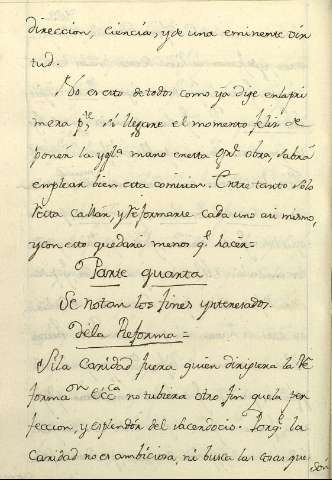 direccion, ciencia, y de una eminente vir
tud.
No es esto de todos como ya dije en la pri
mera p.te si llegare el momento feliz de
poner la Ygl.a mano en esta gr.l obra, sabrá
emplear bien esta comision. Entre tanto solo
resta callar, y reformarse cada uno asi mismo,
y con esto quedará menos q.e hacer=
Parte quarta
Se notan los fines ynteresados
de la Reforma=
Si la Caridad fuera quien dirijiera la Re
forma.on Ecc.ca no tubiera otro fin que la per
feccion, y esplendor del sacerdocio. Porq.e la
Caridad no es ambiciosa, ni busca las cosas que
son